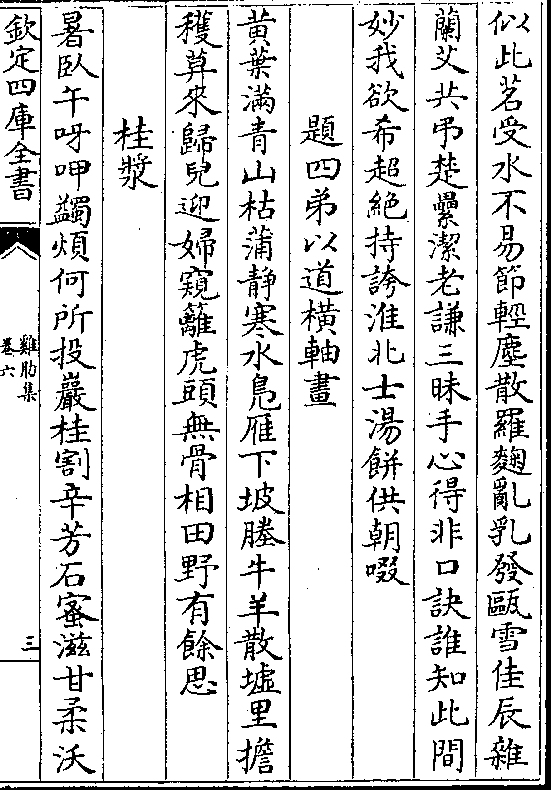 似此茗受水不易節輕塵散羅麴亂乳發甌雪佳辰雜
蘭艾共弔楚纍潔老謙三昧手心得非口訣誰知此間
妙我欲希超絕持誇淮北士湯餅供朝啜
題四弟以道橫軸畫
黃葉滿青山枯蒲靜寒水鳧雁下坡塍牛羊散墟里擔
穫算來歸兒迎婦窺籬虎頭無骨相田野有餘思
桂漿
暑臥午呀呷蠲煩何所投巖桂割辛芳石蜜滋甘柔沃
欽定四庫全書
雞肋集
卷六
三